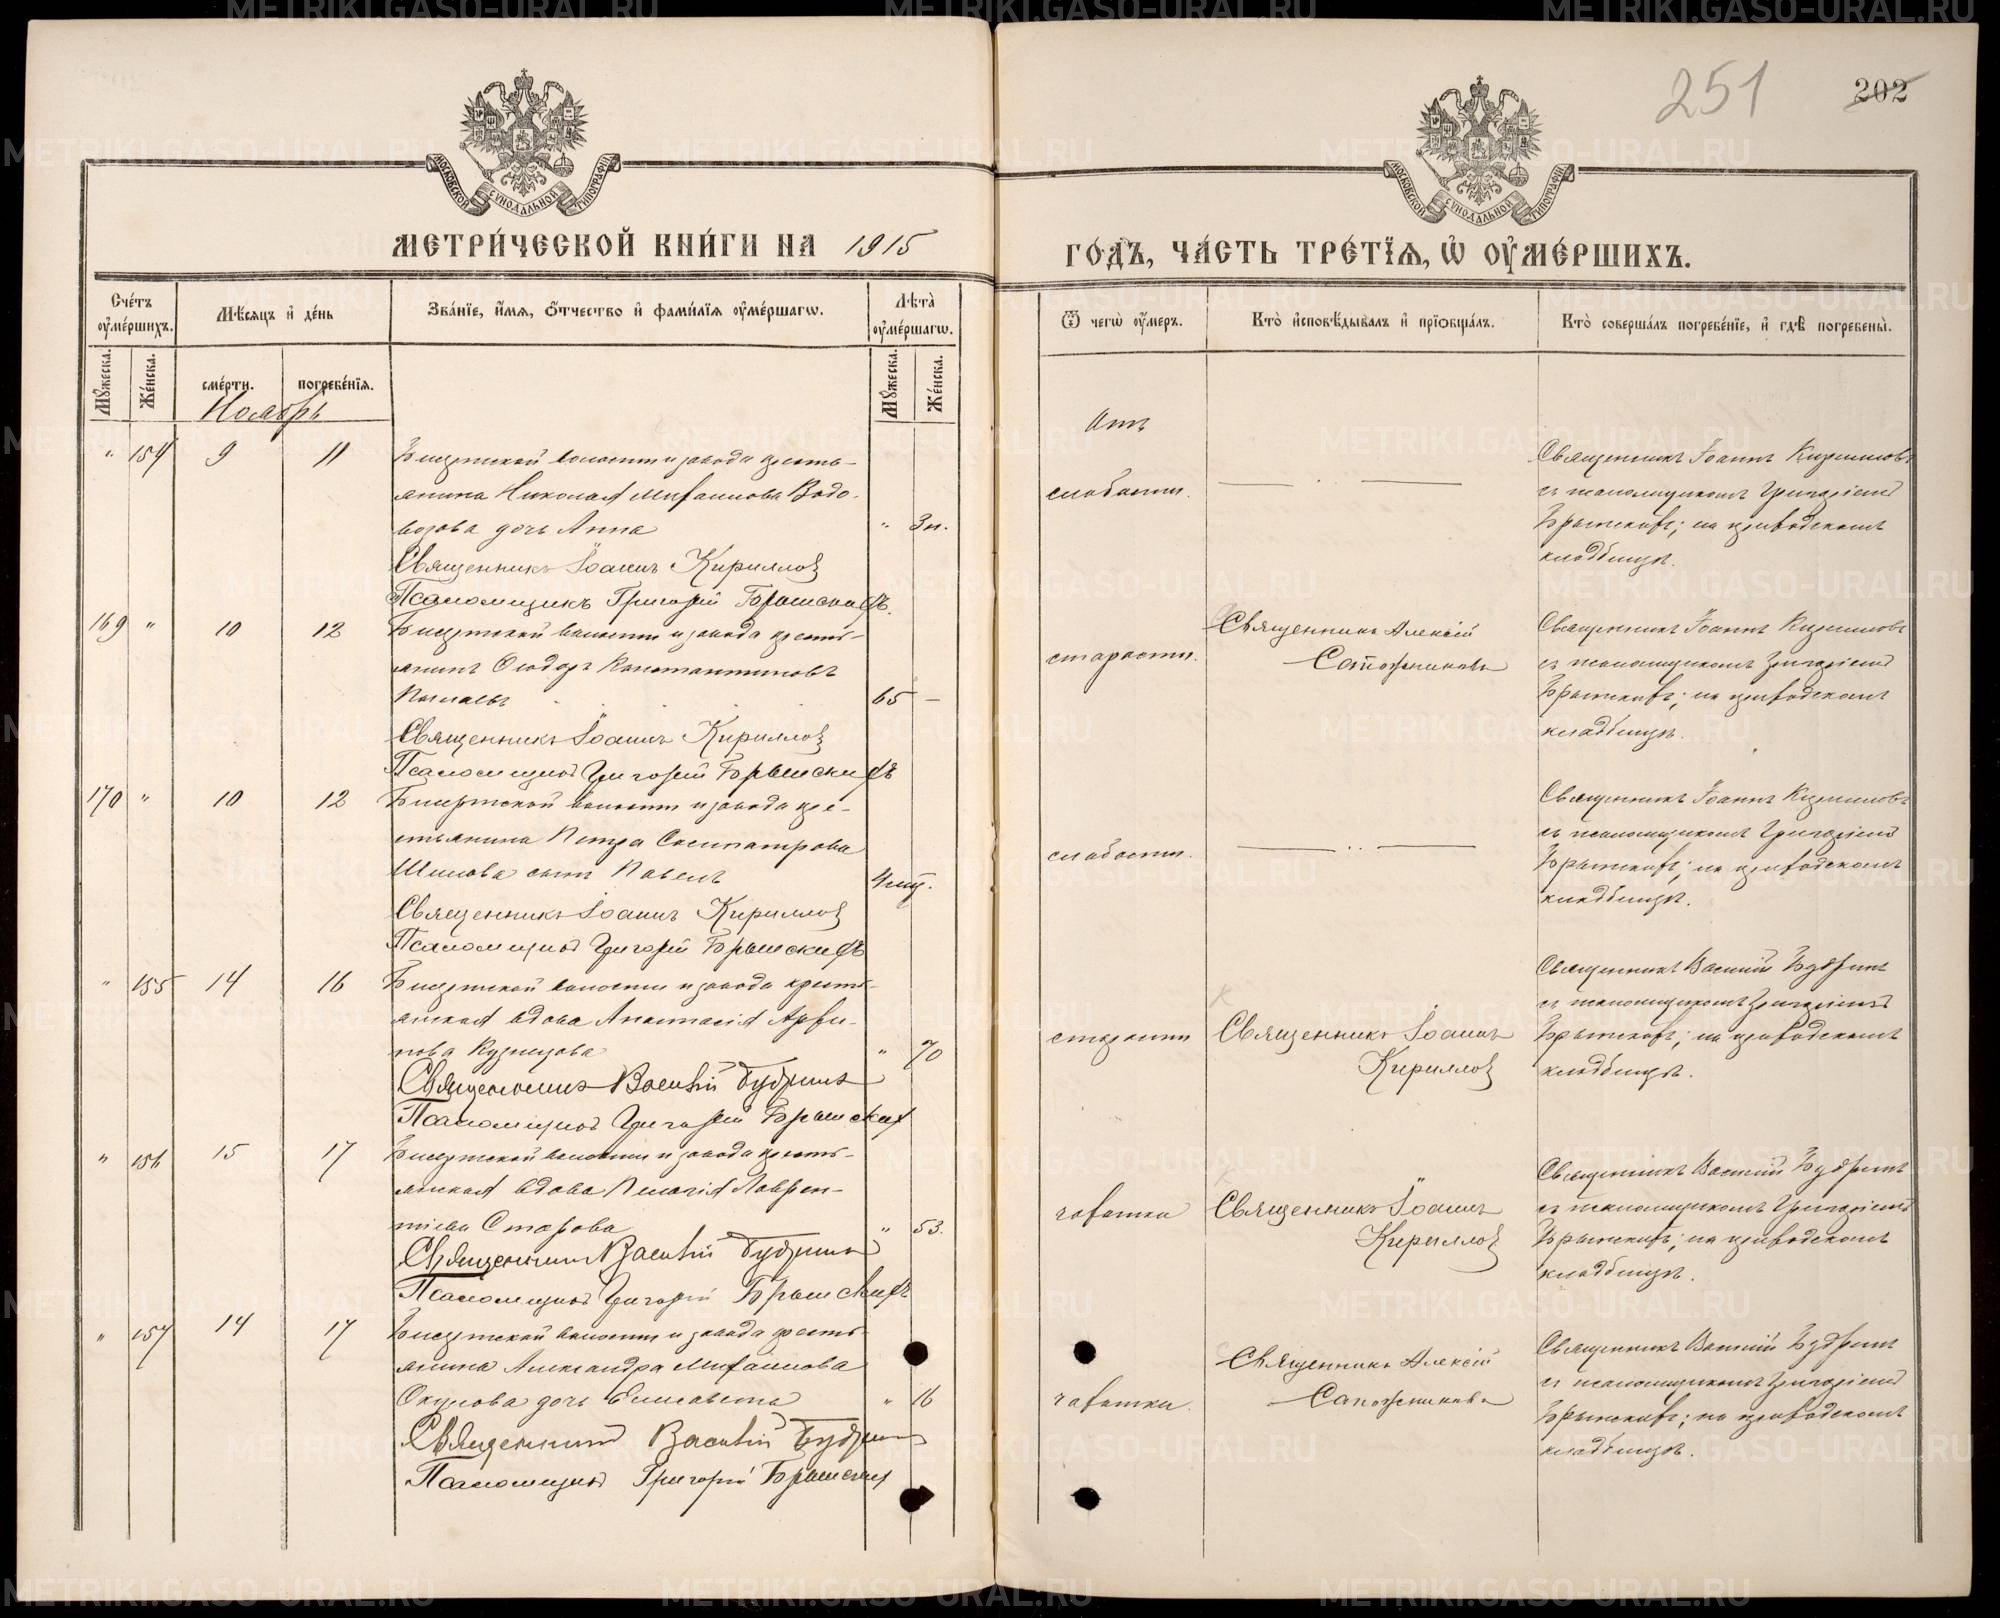 251
202
МОСКОВСКОЙ СУНОДАЛЬНОЙ ТИПОГРАФІИ
МОСКОВСКОЙ СУНОДАЛЬНОЙ ТИПОГРАФІИ
МЕТРИ́ЧЕСКОЙ КНИ́ГИ НА 1915
ГО́ДЪ, ЧА́СТЬ ТРЕ́ТІЯ, Ѡ҆ ОУ҆МЕ́РШИХЪ.
Сче́тъ оу҆ме́ршихъ.
Мѣ́сяцъ и҆ де́нь
Зва́нїе, и҆́мя, ѻ҆́тчество и҆ фами́лїя оу҆ме́ршагѡ.
Лѣ́та оу҆ме́ршагѡ.
Мꙋ́жеска.
Же́нска.
сме́рти.
погребе́нїя.
Мꙋ́жеска.
Же́нска.
Ѿ чегѡ̀ оу҆́меръ.
Кто̀ и҆сповѣ́дывалъ и҆ прїобща́лъ.
Кто̀ соверша́лъ погребе́нїе, и҆ гдѣ̀ погребены̀.
Ноябрь
" 154 9 11
Бисертской волости и завода кресть-
янина Николая Михаилова Водо-
возова дочь Анна " 3 н.
Священникъ Іоаннъ Кирилловъ
Псаломщикъ Григорій Брытскихъ.
Отъ
слабости.
Священникъ Іоаннъ Кирилловъ
съ псаломщикомъ Григоріемъ
Брытскихъ; на приходскомъ
кладбищѣ.
169 " 10 12
Бисертской волости и завода кресть-
янинъ Ѳеодоръ Константиновъ
65 –
Священникъ Іоаннъ Кирилловъ
Псаломщикъ Григорій Брытскихъ
старости.
Священникъ Алексій
Сапожниковъ
Священникъ Іоаннъ Кирилловъ
съ псаломщикомъ Григоріемъ
Брытскихъ; на приходскомъ
кладбищѣ.
170 " 10 12
Бисертской волости и завода кре-
стьянина Петра Скипатрова
Шилова сынъ Павелъ 4 мѣс.
Священникъ Іоаннъ Кирилловъ
Псаломщикъ Григорій Брытскихъ
слабости.
Священникъ Іоаннъ Кирилловъ
съ псаломщикомъ Григоріемъ
Брытскихъ; на приходскомъ
кладбищѣ.
" 155 14 16
Бисертской волости и завода кресть-
янская вдова Анастасія
Кузнецова " 70
Священникъ Василій Будринъ
Псаломщикъ Григорій Брытскихъ
старости
Священникъ Іоаннъ
Кирилловъ
Священникъ Василій Будринъ
съ псаломщикомъ Григоріемъ
Брытскихъ; на приходскомъ
кладбищѣ.
" 156 15 17
Бисертской волости и завода кресть-
янская вдова Пелагія Лаврен-
тіева " 53.
Священникъ Василій Будринъ
Псаломщикъ Григорій Брытскихъ
чахотки
Священникъ Іоаннъ
Кирилловъ
Священникъ Василій Будринъ
съ псаломщикомъ Григоріемъ
Брытскихъ; на приходскомъ
кладбищѣ.
" 157 14 17
Бисертской волости и завода кресть-
янина Александра Михаилова
Окулова дочь Елисавета " 16
Священникъ Василій Будринъ
Псаломщикъ Григорій Брытскихъ
чахотки.
Священникъ Алексій
Сапожниковъ
Священникъ Василій Будринъ
съ псаломщикомъ Григоріемъ
Брытскихъ; на приходскомъ
кладбищѣ.
METRIKI.GASO-URAL.RU